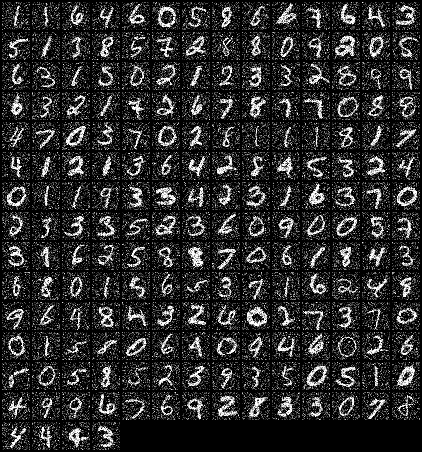 1 1 6 4 6 0 5 8 6 6 7 6 4 3
5 1 3 8 5 7 2 8 8 0 9 2 0 5
6 3 1 5 0 2 1 2 3 3 2 8 9 9
6 3 2 1 7 2 6 7 8 7 7 0 8 8
4 7 0 3 7 0 2 8 1 6 1 8 1 7
4 1 2 1 3 6 4 2 8 4 5 3 2 4
0 1 1 9 3 3 4 2 3 1 6 3 7 0
2 3 3 3 5 2 3 6 0 9 0 0 5 7
3 1 6 2 5 8 8 7 0 6 1 8 4 3
6 8 0 1 5 6 5 3 7 1 6 2 4 8
9 6 9 8 4 3 2 6 0 2 7 3 7 0
0 1 5 8 0 6 1 0 9 4 6 0 2 6
5 0 5 8 5 2 3 9 3 5 0 5 1 0
4 9 9 6 7 6 9 2 8 3 3 0 7 8
4 4 4 3